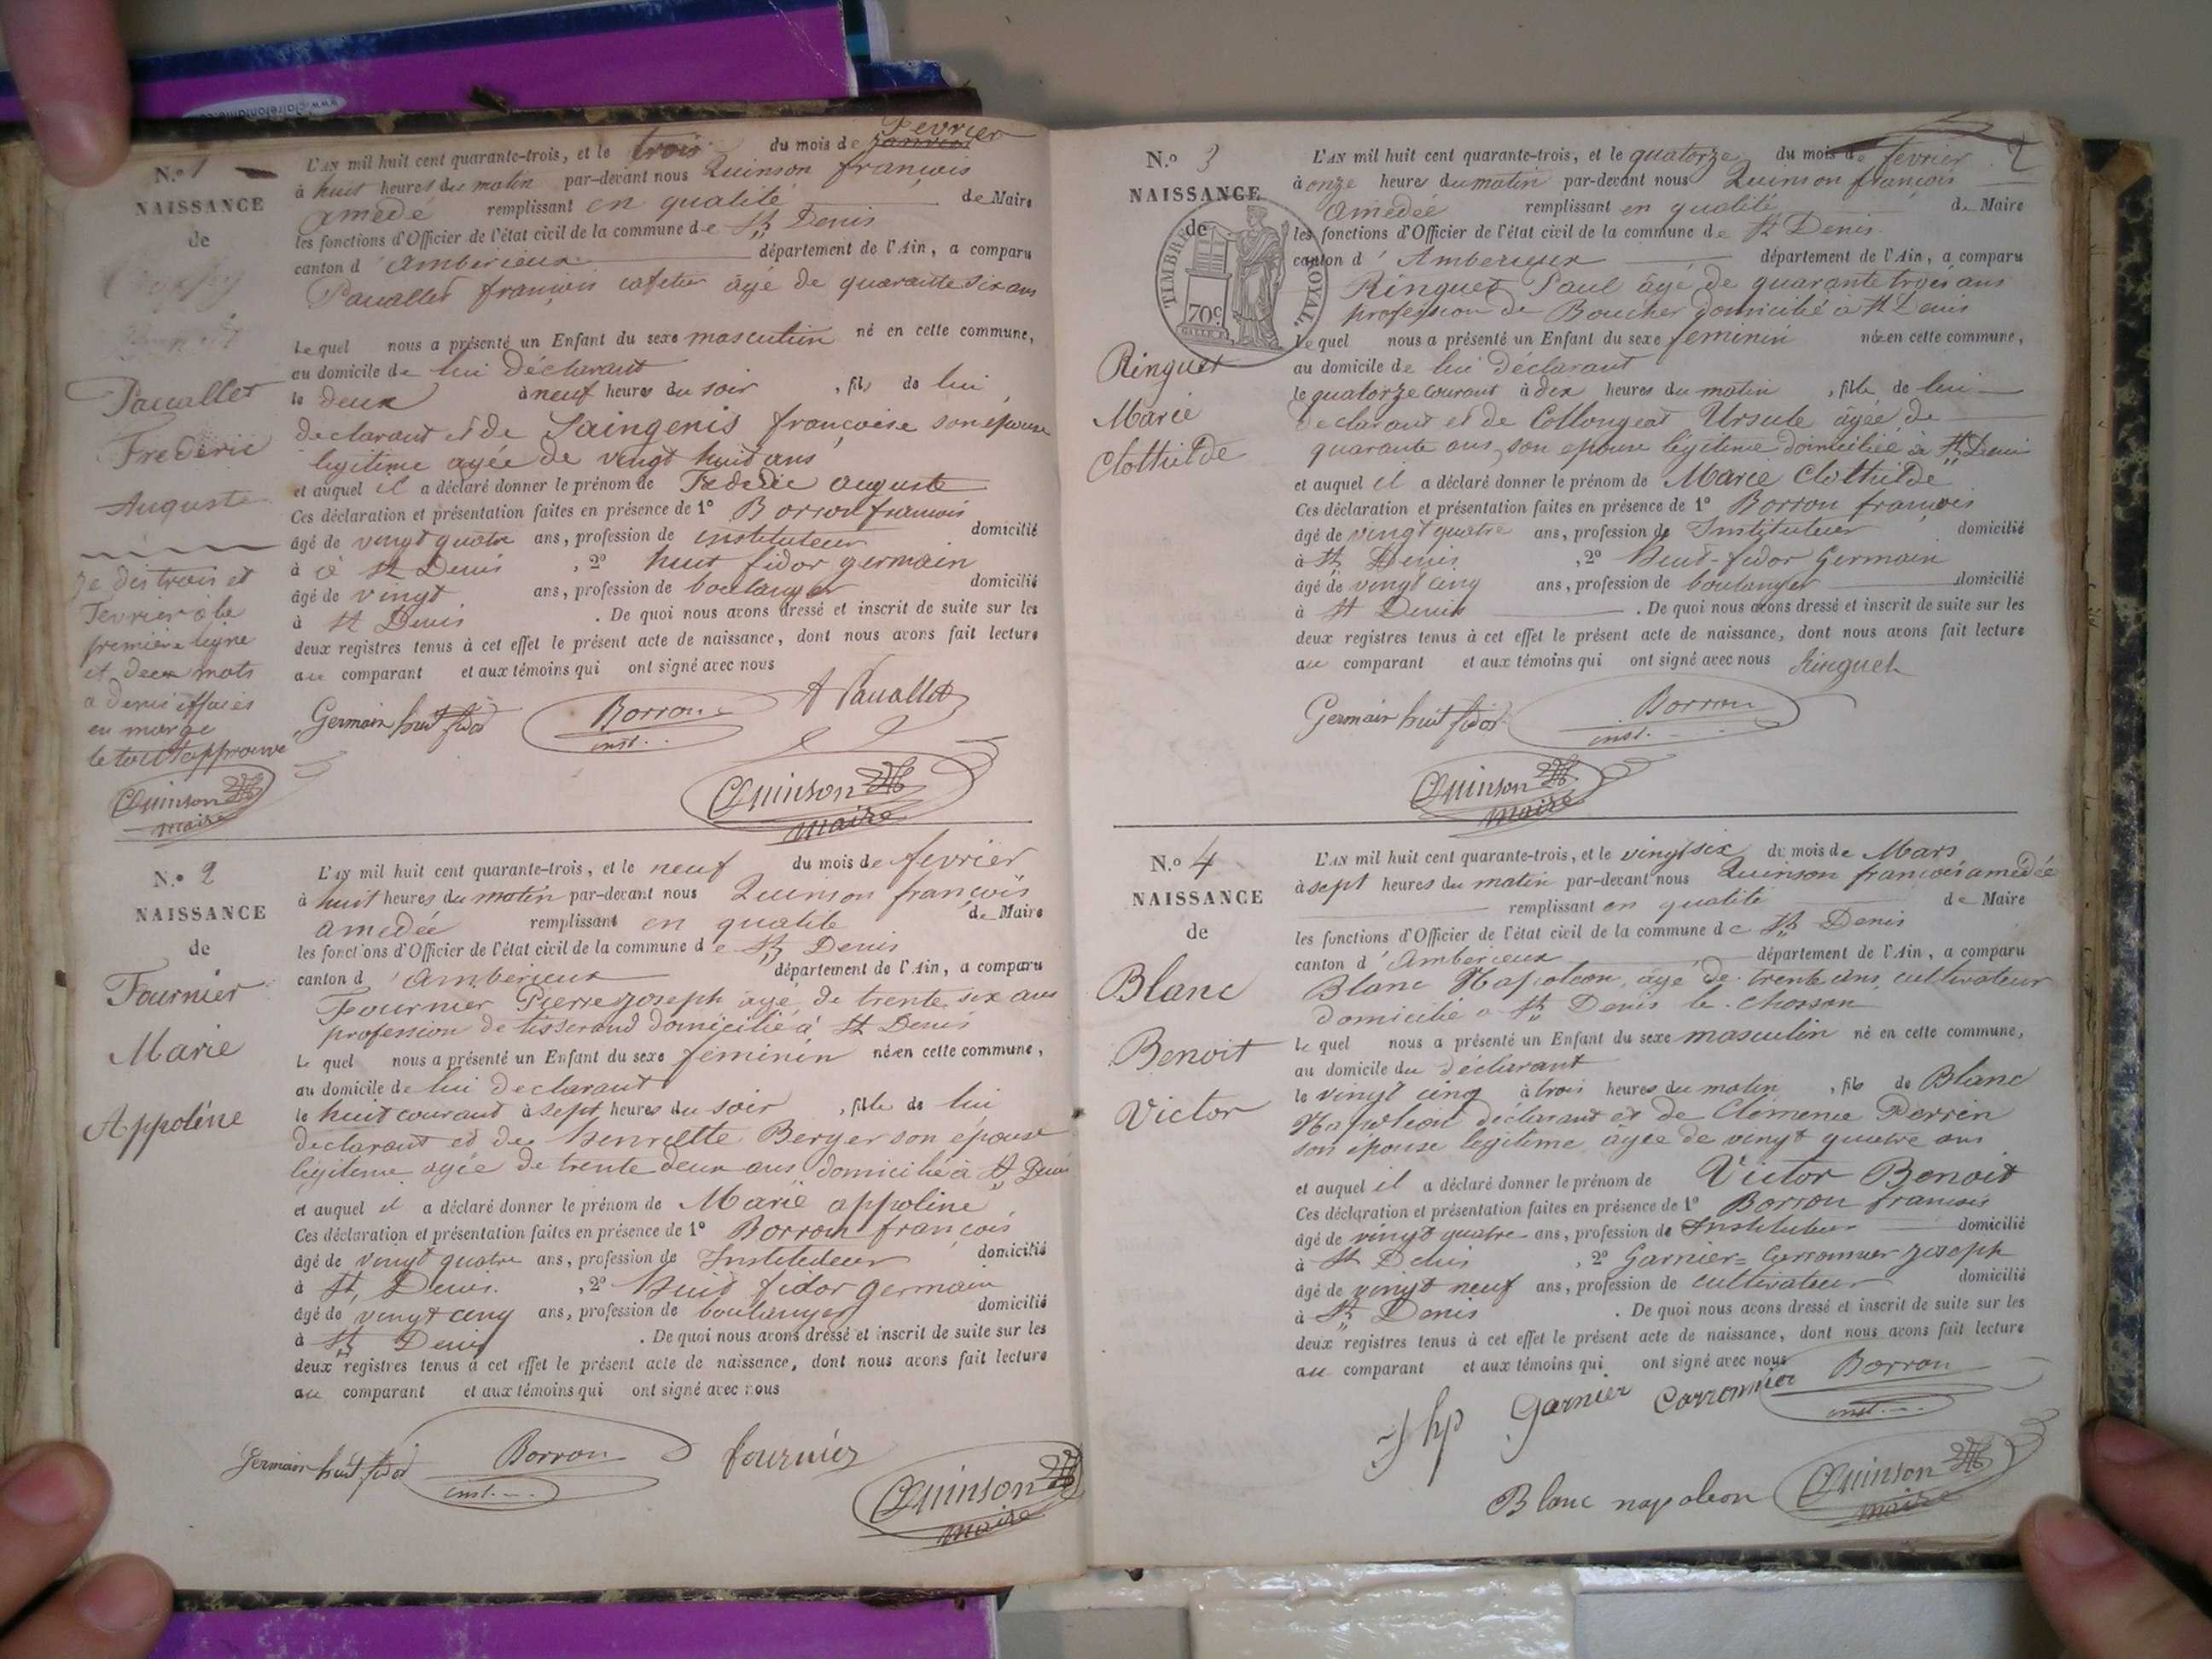 N.o 1
NAISSANCE
de
Pauallet
Frederic
Auguste
je dis trois et
Fevrier à la
première ligne
et deux mots
a demi effacés
en marge
le tout approuvé
Quinson
maire
L'AN mil huit cent quarante-trois, et le trois du mois de Fevrier
à huit heures du matin par-devant nous Quinson françois
amedé remplissant en qualité de Maire
les fonctions d'Officier de l'état civil de la commune de St Denis
canton d'Amberieux département de l'Ain, a comparu
Pauallet françois cafetier âgé de quarante six ans
Lequel nous a présenté un Enfant du sexe masculin né en cette commune,
au domicile de lui déclarant
le deux à neuf heures du soir, fils de lui
declarant et de Saingenis françoise son épouse
legitime agée de vingt huit ans
et auquel il a déclaré donner le prénom de Frederic auguste
Ces déclaration et présentation faites en présence de 1° Borron francois
âgé de vingt quatre ans, profession de instituteur domicilié
à à St Denis, 2° huit fidor germain
âgé de vingt ans, profession de boulanger domicilié
à St Denis. De quoi nous avons dressé et inscrit de suite sur les
deux registres tenus à cet effet le présent acte de naissance, dont nous avons fait lecture
au comparant et aux témoins qui ont signé avec nous
Germain huit fidor Borron inst. Pauallet
Quinson
maire
N.o 2
NAISSANCE
de
Fournier
Marie
Appoline
L'AN mil huit cent quarante-trois, et le neuf du mois de fevrier
à huit heures du matin par-devant nous Quinson françois
amedée remplissant en qualite de Maire
les fonctions d'Officier de l'état civil de la commune de St Denis
canton d'Amberieux département de l'Ain, a comparu
Fournier Pierre joseph âgé de trente six ans
profession de tisserand domicilié à St Denis
Le quel nous a présenté un Enfant du sexe féminin née en cette commune,
au domicile de lui declarant
le huit courant à sept heures du soir, fille de lui
declarant et de henriette Berger son epouse
légitime agée de trente deux ans domicilié à St Denis
et auquel il a déclaré donner le prénom de Marie appoline
Ces déclaration et présentation faites en présence de 1° Borron françois
âgé de vingt quatre ans, profession de Instituteur domicilié
à St, Denis. , 2° huit fidor germain
âgé de vingt cinq ans, profession de boulanger domicilié
à St Denis. De quoi nous avons dressé et inscrit de suite sur les
deux registres tenus à cet effet le présent acte de naissance, dont nous avons fait lecture
au comparant et aux témoins qui ont signé avec nous
Germain huit fidor Borron inst. fournier
Quinson
maire
2
N.o 3
NAISSANCE
de
TIMBRE ROYAL.
70c
Ringuet
Marie
Clothilde
L'AN mil huit cent quarante-trois, et le quatorze du mois de fevrier
à onze heures du matin par-devant nous Quinson françois
Amedée remplissant en qualité de Maire
les fonctions d'Officier de l'état civil de la commune de St Denis
canton d'Amberieux département de l'Ain, a comparu
Ringuet Paul âgé de quarante trois ans
profession de Boucher domicilié à St Denis
Le quel nous a présenté un Enfant du sexe feminin née en cette commune,
au domicile de lui déclarant
le quatorze courant à dix heures du matin, fille de lui
declarant et de Collongeat Ursule âgée de
quarante ans, son epouse légitime domiciliée à St Denis
et auquel il a déclaré donner le prénom de Marie Clothilde
Ces déclaration et présentation faites en présence de 1° Borron françois
âgé de vingt quatre ans, profession de Instituteur domicilié
à St Denis, 2° huit-fidor Germain
âgé de vingt cinq ans, profession de boulanger domicilié
à St Denis. De quoi nous avons dressé et inscrit de suite sur les
deux registres tenus à cet effet le présent acte de naissance, dont nous avons fait lecture
au comparant et aux témoins qui ont signé avec nous Ringuet
Germain huit fidor Borron inst.
Quinson
maire
N.o 4
NAISSANCE
de
Blanc
Benoit
Victor
L'AN mil huit cent quarante-trois, et le vingt six du mois de Mars
à sept heures du matin par-devant nous Quinson françois amédée
remplissant en qualité de Maire
les fonctions d'Officier de l'état civil de la commune de St Denis
canton d'Amberieux département de l'Ain, a comparu
Blanc Napoleon, âgé de trente ans, cultivateur
domicilié a St Denis le Chosson
Le quel nous a présenté un Enfant du sexe masculin né en cette commune,
au domicile du déclarant
le vingt cinq à trois heures du matin, fils de Blanc
Napoleon déclarant et de Clémence Perrin
son épouse légitime âgée de vingt quatre ans
et auquel il a déclaré donner le prénom de Victor Benoit
Ces déclaration et présentation faites en présence de 1° Borron francois
âgé de vingt quatre ans, profession de Instituteur domicilié
à St Denis, 2° Garnier=Carronnier joseph
âgé de vingt neuf ans, profession de cultivateur domicilié
à St Denis. De quoi nous avons dressé et inscrit de suite sur les
deux registres tenus à cet effet le présent acte de naissance, dont nous avons fait lecture
au comparant et aux témoins qui ont signé avec nous
Jhp Garnier Carronnier Borron inst.
Blanc napoleon Quinson
maire